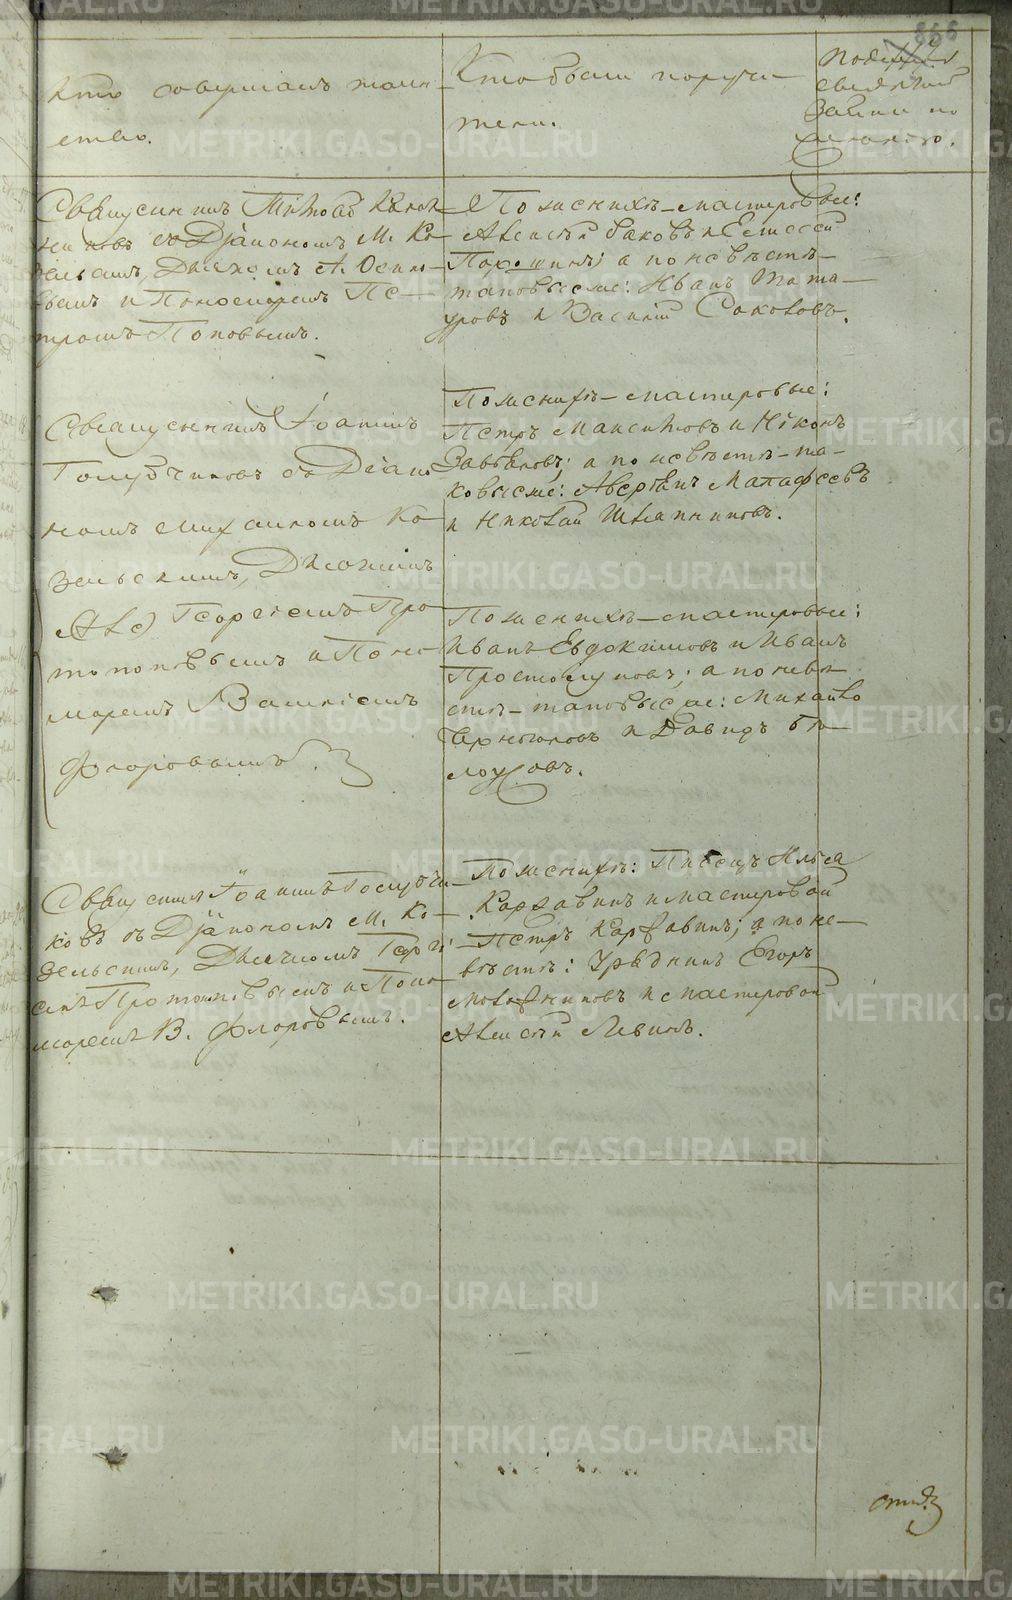 666
Кто совершалъ таин-
ство.
Кто были поручи-
тели.
Подпись
свидѣтелей
записи по
желанію.
Священникъ
съ Діакономъ М. Ко-
зельскимъ, Дьячкомъ А. Осипо-
вымъ и Пономаремъ Пе-
тромъ Поповымъ.
По женихѣ – мастеровые:
Алексѣй Баковъ и Елисей
Паршинъ; а по невѣстѣ –
таковые же: Иванъ Тата-
уровъ и Василій Соколовъ.
Священникъ Іоаннъ
Голубчиковъ съ Діако-
номъ Михаиломъ Ко-
зельскимъ, Дьячкомъ
Георгіемъ Про-
топоповымъ и Поно-
маремъ Василіемъ
Флоровымъ.
По женихѣ – мастеровые:
Петръ Максимовъ и Никонъ
Завьяловъ; а по невѣстѣ – та-
ковые же: Аверьянъ Малафеевъ
и Николай Шляпниковъ.
По женихѣ – мастеровые:
Иванъ Евдокимовъ и Иванъ
Простолуповъ; а по невѣ-
стѣ – таковые же: Михайло
и Давидъ Бѣ-
лоусовъ.
Священникъ Іоаннъ Голубчи-
ковъ съ Діакономъ М. Ко-
зельскимъ, Дьячкомъ Георгі-
емъ Протопоповымъ и Поно-
маремъ В. Флоровымъ.
По женихѣ: Писецъ Илья
Каржавинъ и мастеровой
Петръ Каржавинъ; а по не-
вѣстѣ: Урядникъ Егоръ
и мастеровой
Алексѣй Левинъ.
METRIKI.GASO-URAL.RU